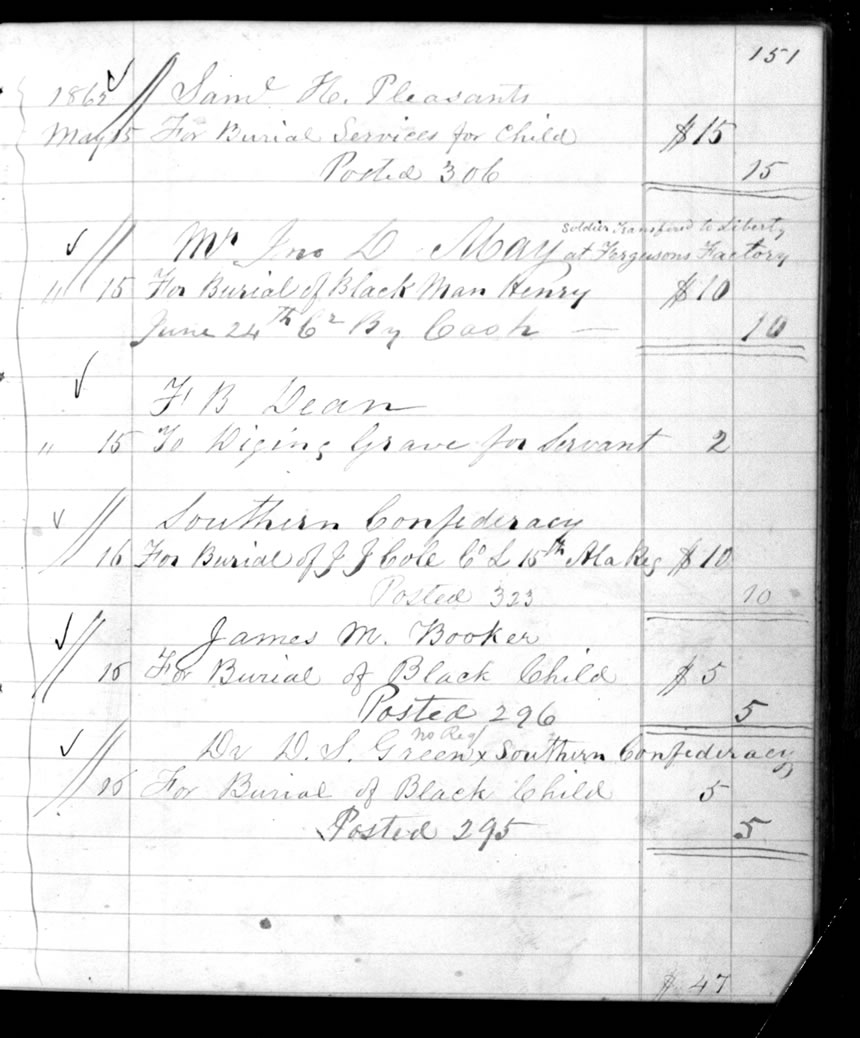 151
1862 Saml H. Pleasants
May 15 For Burial Services for Child $15
Posted 306 15
Soldier Transfired to Liberty
Mr Jno D May at Fergusons Factory
" 15 For Burial of Black Man Henry $10
June 24th Cr By Cash — 10
F B Dean
" 15 To Diging Grave for Servant 2
Southern Confederacy
16 For Burial of J J Cole Co L 15th Ala Reg $10
Posted 323 10
James M. Booker
16 For Burial of Black Child $5
Posted 296 5
no Reqt
Dr D. S. Green x Southern Confederacy
16 For Burial of Black Child 5
Posted 295 5
$47